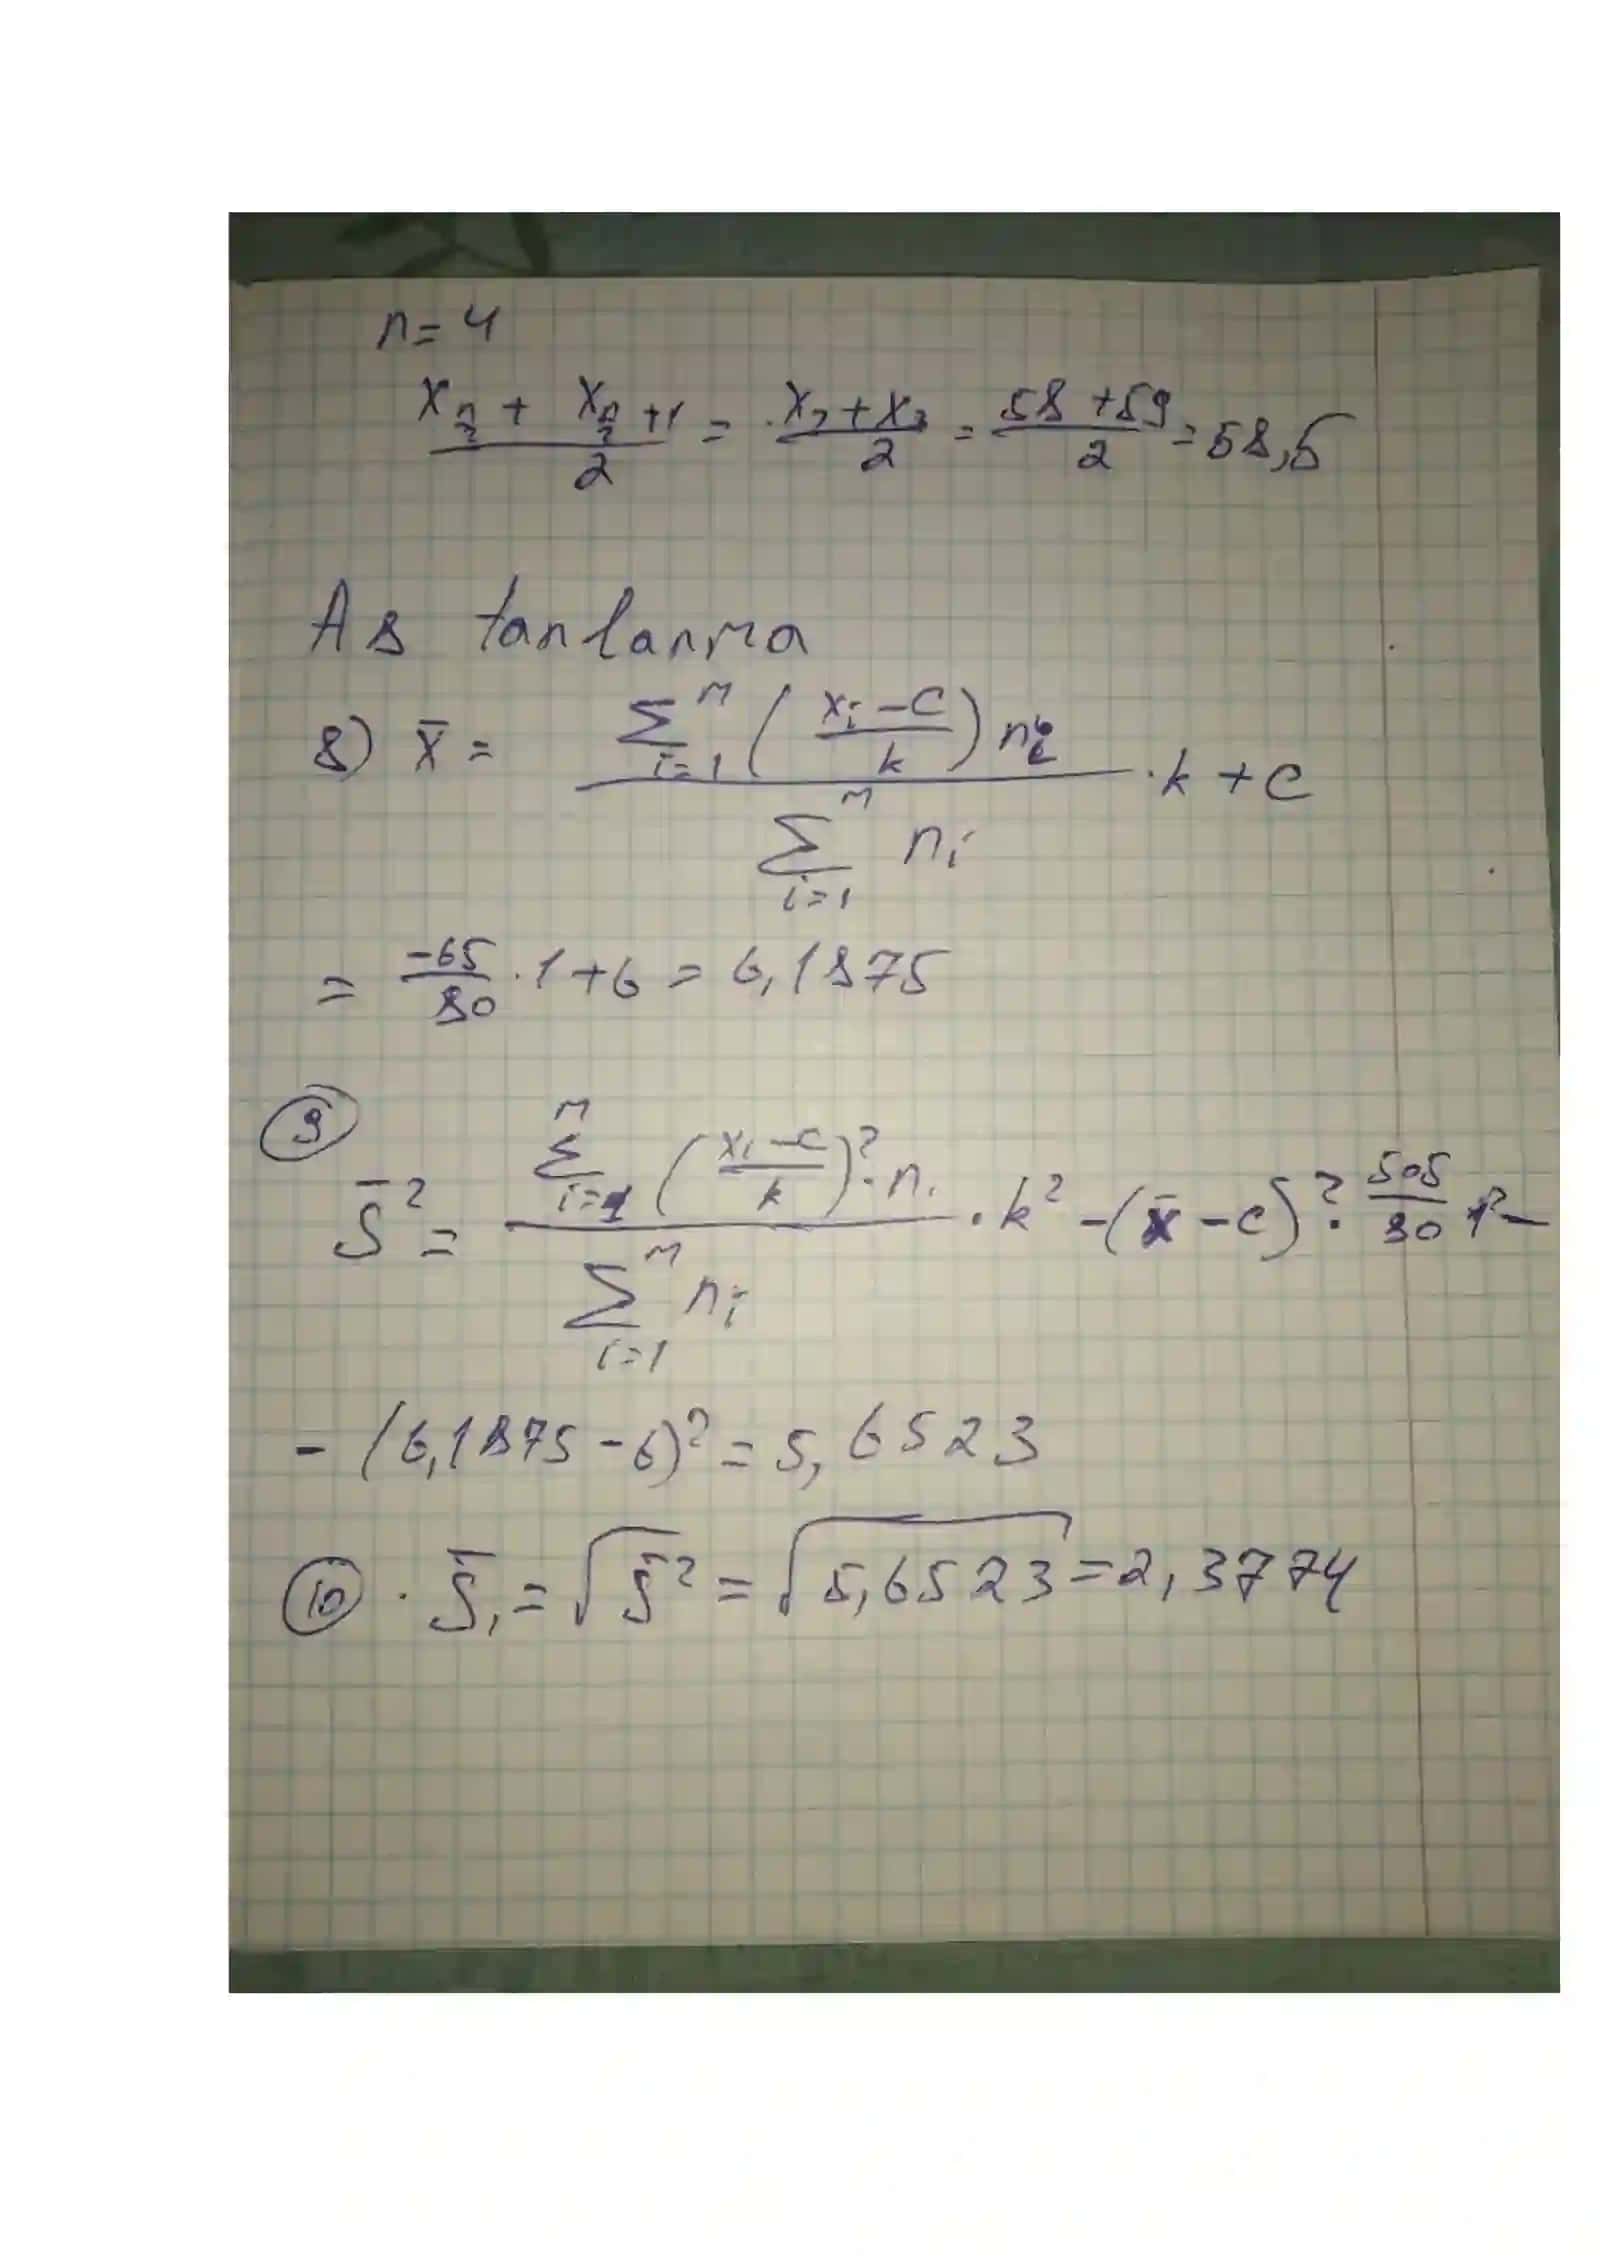 n = 4
(x_{n/2} + x_{n/2 + 1}) / 2 = (x₂ + x₃) / 2 = (58 + 59) / 2 = 58,5
A8 tanlanma
8) x̄ = (∑_{i=1}^{m} ((x_i - C) / k) n_i) / (∑_{i=1}^{m} n_i) · k + C
= (-65 / 80) · 1 + 6 = 6,1875
9
S̄² = (∑_{i=1}^{m} ((x_i - C) / k)² · n_i) / (∑_{i=1}^{m} n_i) · k² - (x̄ - C)² · (505 / 80) 1² -
- (6,1875 - 6)² = 5,6523
10 · S̄₁ = √S̄² = √5,6523 = 2,3774